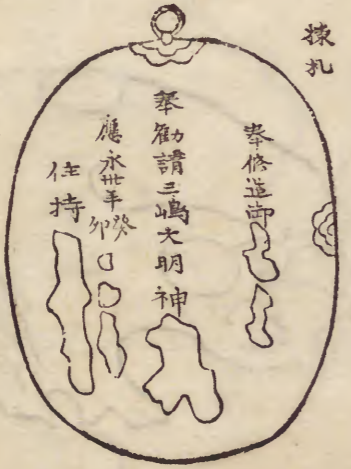 棟札
奉修造御
奉勸請三嶋大明神
應永卅年癸卯
住持